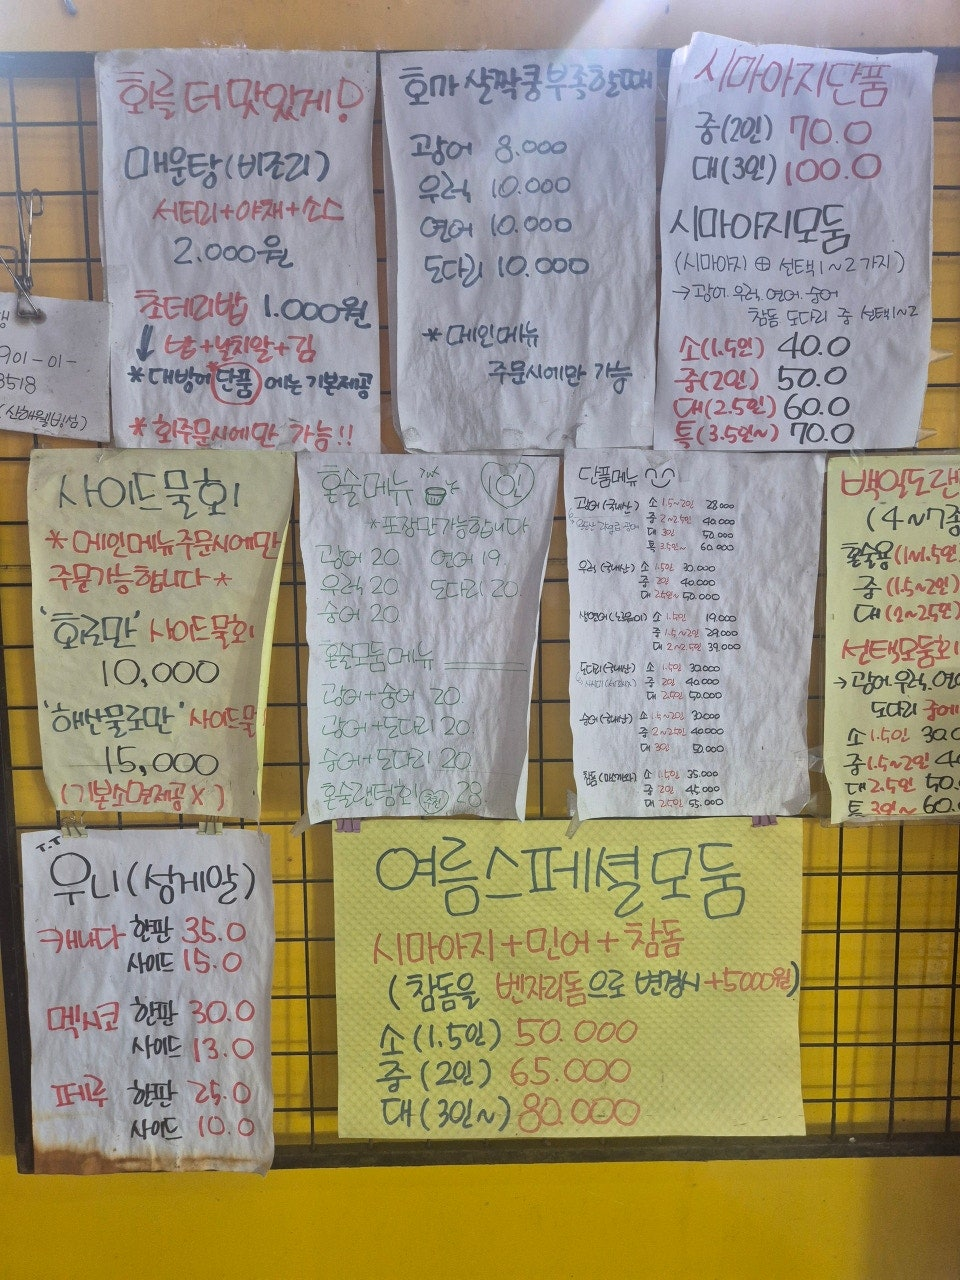 회를 더 맛있게!
매운탕(비조리)
서더리+야채+소스
2.000원
초데리밥 1.000원
↓ 밥+날치알+김
* 대방어 단품 에는 기본제공
* 회주문시에만 가능!!
회가 살짝쿵 부족할때
광어 8.000
우럭 10.000
연어 10.000
도다리 10.000
* 메인메뉴
주문시에만 가능
시마아지단품
중(2인) 70.0
대(3인) 100.0
시마아지모둠
(시마아지 ⊕ 선택1~2가지)
→ 광어.우럭.연어.숭어
참돔 도다리 중 선택1~2
소(1.5인) 40.0
중(2인) 50.0
대(2.5인) 60.0
특(3.5인~) 70.0
901-01-
3518
사이드물회
* 메인메뉴주문시에만
주문가능합니다 *
'회로만' 사이드물회
10,000
'해산물로만' 사이드물
15,000
(기본소면제공 X)
혼술메뉴 1인
*포장만가능합니다
광어 20 연어 19.
우럭 20 도다리 20.
숭어 20.
혼술모둠메뉴
광어+숭어 20.
광어+도다리 20.
숭어+도다리 20.
혼술랜덤회 추천 28.
단품메뉴
광어(국내산) 소 1.5~2인 28.000
중 2~2.5인 40.000
대 3인 50.000
특 3.5인~ 60.000
우럭(국내산) 소 1.5인 30.000
중 2인 40.000
대 2.5인~ 50.000
생연어(노르웨이) 소 1.5인 19.000
중 1.5~2인 29.000
대 2~2.5인 39.000
도다리(국내산) 소 1.5인 30.000
중 2인 40.000
대 2.5인 50.000
숭어(국내산) 소 1.5~2인 30.000
중 2~2.5인 40.000
대 3인 50.000
참돔 소 1.5인 35.000
중 2인 45.000
대 2.5인 55.000
백일도랜
(4~7종
혼술용(1~1.5인
중 (1.5~2인)
대 (2~2.5인)
선택모둠회
→ 광어.우럭.연어
도다리 중에
소 1.5인 30.0
중 1.5~2인
대 2.5인 50.
특 3인~ 60.
T.T
우니(성게알)
캐나다 한판 35.0
사이드 15.0
멕시코 한판 30.0
사이드 13.0
페루 한판 25.0
사이드 10.0
여름스페셜모둠
시마아지+민어+참돔
(참돔을 벤자리돔으로 변경시 +5000원)
소(1.5인) 50.000
중(2인) 65.000
대(3인~) 80.000